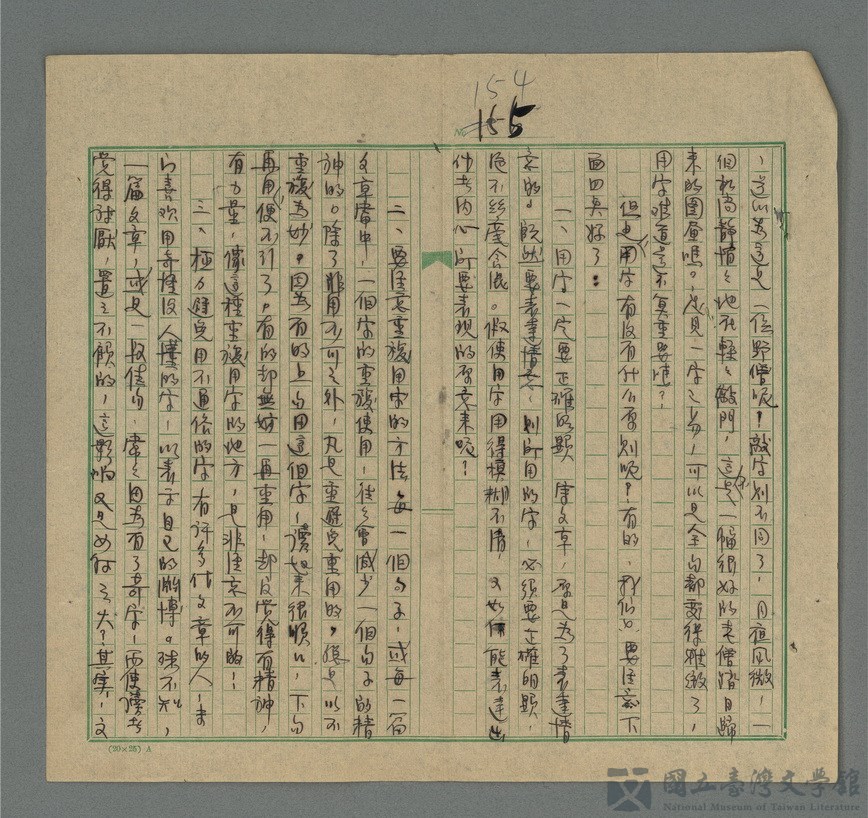 154
155
No
、這以為這是一位野僧呢？敲字則不同了，月夜風微，一
個於高靜悄之地在輕之敲門，這是一幅很好的老僧踏月歸
來的圖畫嗎。足見一字之易，可以是全句都變得雅緻了，
用字难道這不算重要嗎？
但是用字有沒有什么原則呢？有的，我们只要注意下
面四奌好了：
一、用字一定要正確明顯 字文章，原是為了表達情
意的。既然要表達情意，則所用的字，必須要正確明顯，
絕不絲毫含混。假使用字用得模糊不清，又如何能表達出
作者内心所要表現的原意來呢？
二、要注意重複用字的方法 每一個句子，或每一篇
文章當中，一個字的重複使用，往之會减少一個句子的精
神的。除了非用不可之外，凡是重避免重用的，總是以不
重複為妙。因為有的上句用這個字，讀起來很順口，下句
再用便不行了。有的却無妨一再重用，却反覺得有精神，
有力量，像這種重複用字的地方，是非注意不可的！
三、極力避免用不通俗的字 有許多作文章的人，
喜欢用奇怪沒人懂的字，以表示自己的淵博。殊不知，
一篇文章，或是一段佳句，常之因為有了奇字，而使讀者
覺得討厭，置之不顧的，這影响又是如何之大？其实，文
(20×25) A
國立臺灣文學館
National Museum of Taiwan Literature